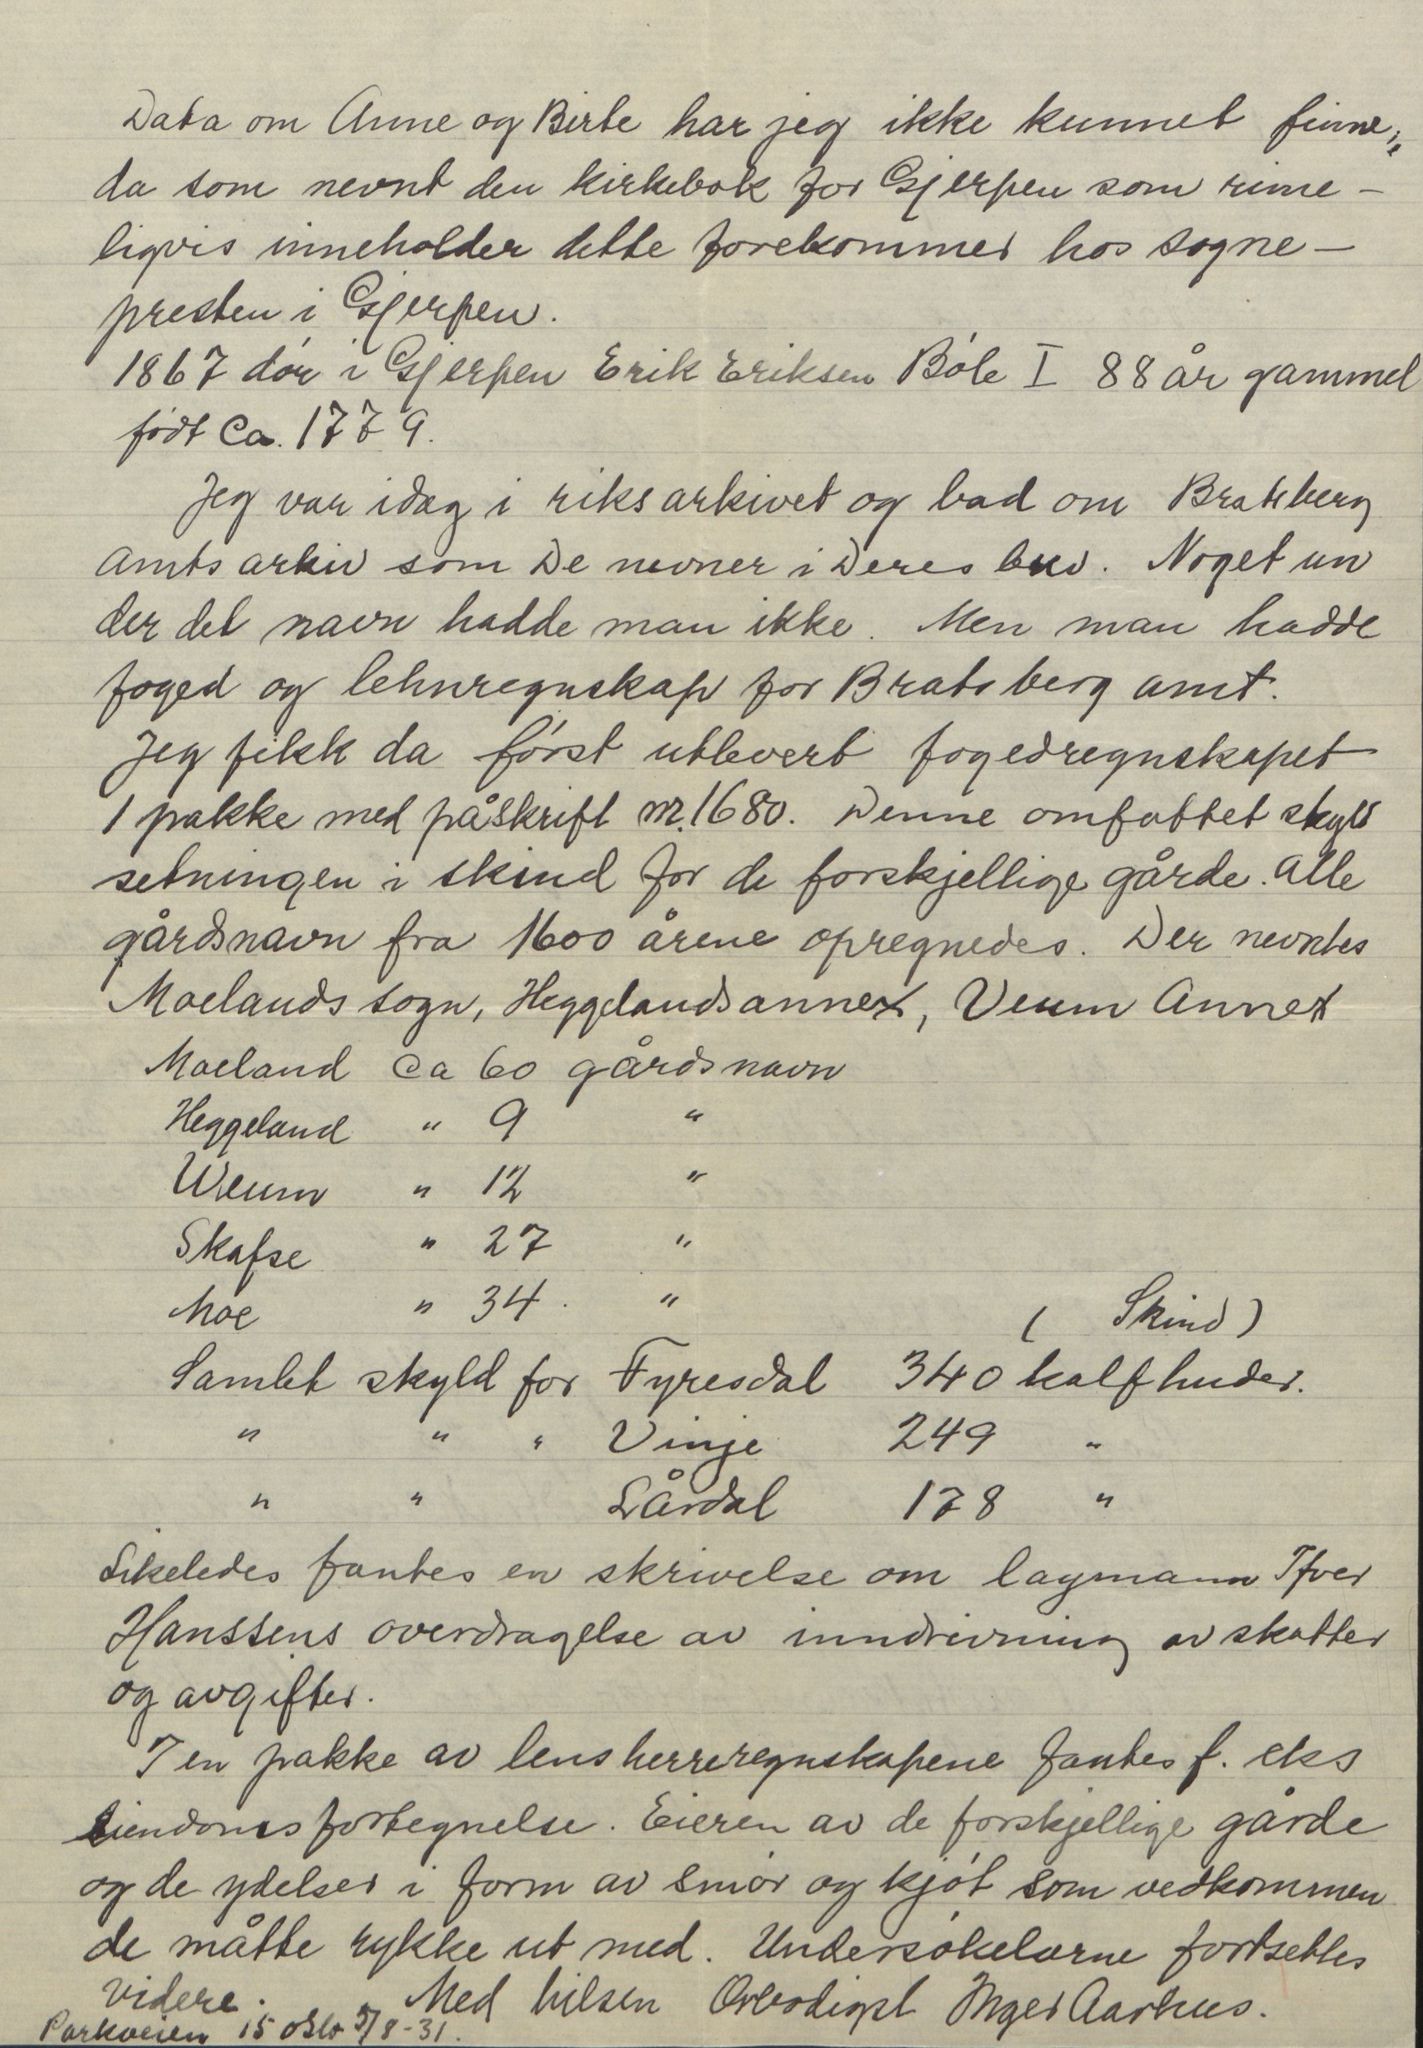 Data om Anne og Birte har jeg ikke kunnet finne,
da som nevnt den kirkebok for Gjerpen som rime-
ligvis inneholder dette forekommer hos sogne-
presten i Gjerpen.
1867 dør i Gjerpen Erik Eriksen Bøle I 88 år gammel
født ca. 1779.
Jeg var idag i riksarkivet og bad om Bratsberg
amts arkiv som De nevner i Deres brev. Noget un
der det navn hadde man ikke. Men man hadde
foged og lehnregnskap for Bratsberg amt.
Jeg fikk da først utlevert fogedregnskapet
1 pakke med påskrift nr. 1680. Denne omfattet skyld
setningen i skind for de forskjellige gårde. Alle
gårdsnavn fra 1600 årene opregnedes. Der nevntes
Moelands sogn, Heggelandsannex, Veum Annex
Moeland ca 60 gårdsnavn
Heggeland " 9 "
Weum " 12 "
Skafse " 27 "
Moe " 34. "
( Skind )
Samlet skyld for Fyresdal 340 kalfhuder.
" " " Vinje 249 "
" " Lårdal 178 "
Likeledes fantes en skrivelse om lagmann Ifver
Hanssens overdragelse av inndrivning av skatter
og avgifter.
I en pakke av lensherreregnskapene fantes f. eks
eiendomsfortegnelse. Eieren av de forskjellige gårde
og de ydelser i form av smør og kjøt som vedkommen
de måtte rykke ut med. Undersøkelserne fortsettes
videre. Med hilsen Ørbødigst Inger Aarhus.
Parkveien 15 Oslo 5/8-31.